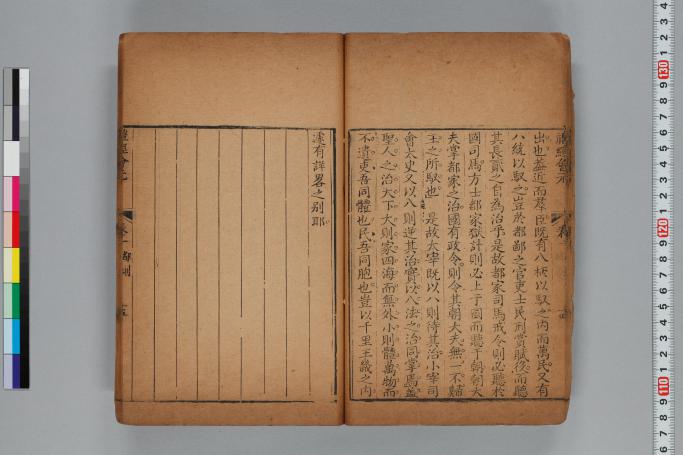 出也蓋近而羣臣既有八柄以馭之内而萬民又有
八統以馭之豈於都鄙之官吏士民刑賞賦役而聽
其長貳之自為治乎是故都家司馬戒令則必聽於
國司馬方士都家獄計則必上于國而聽于朝朝大
夫掌都家之治國有政令則令其朝大夫無一不歸
王之所馭也是故大宰既以八則待其治小宰司
會大史又以八則逆其治實以八法之治同掌焉蓋
聖人之治天下大則家四海而無外小則體萬物而
不遺吏吾同體也民吾同胞也豈以千里王畿之内
遽有詳畧之別耶